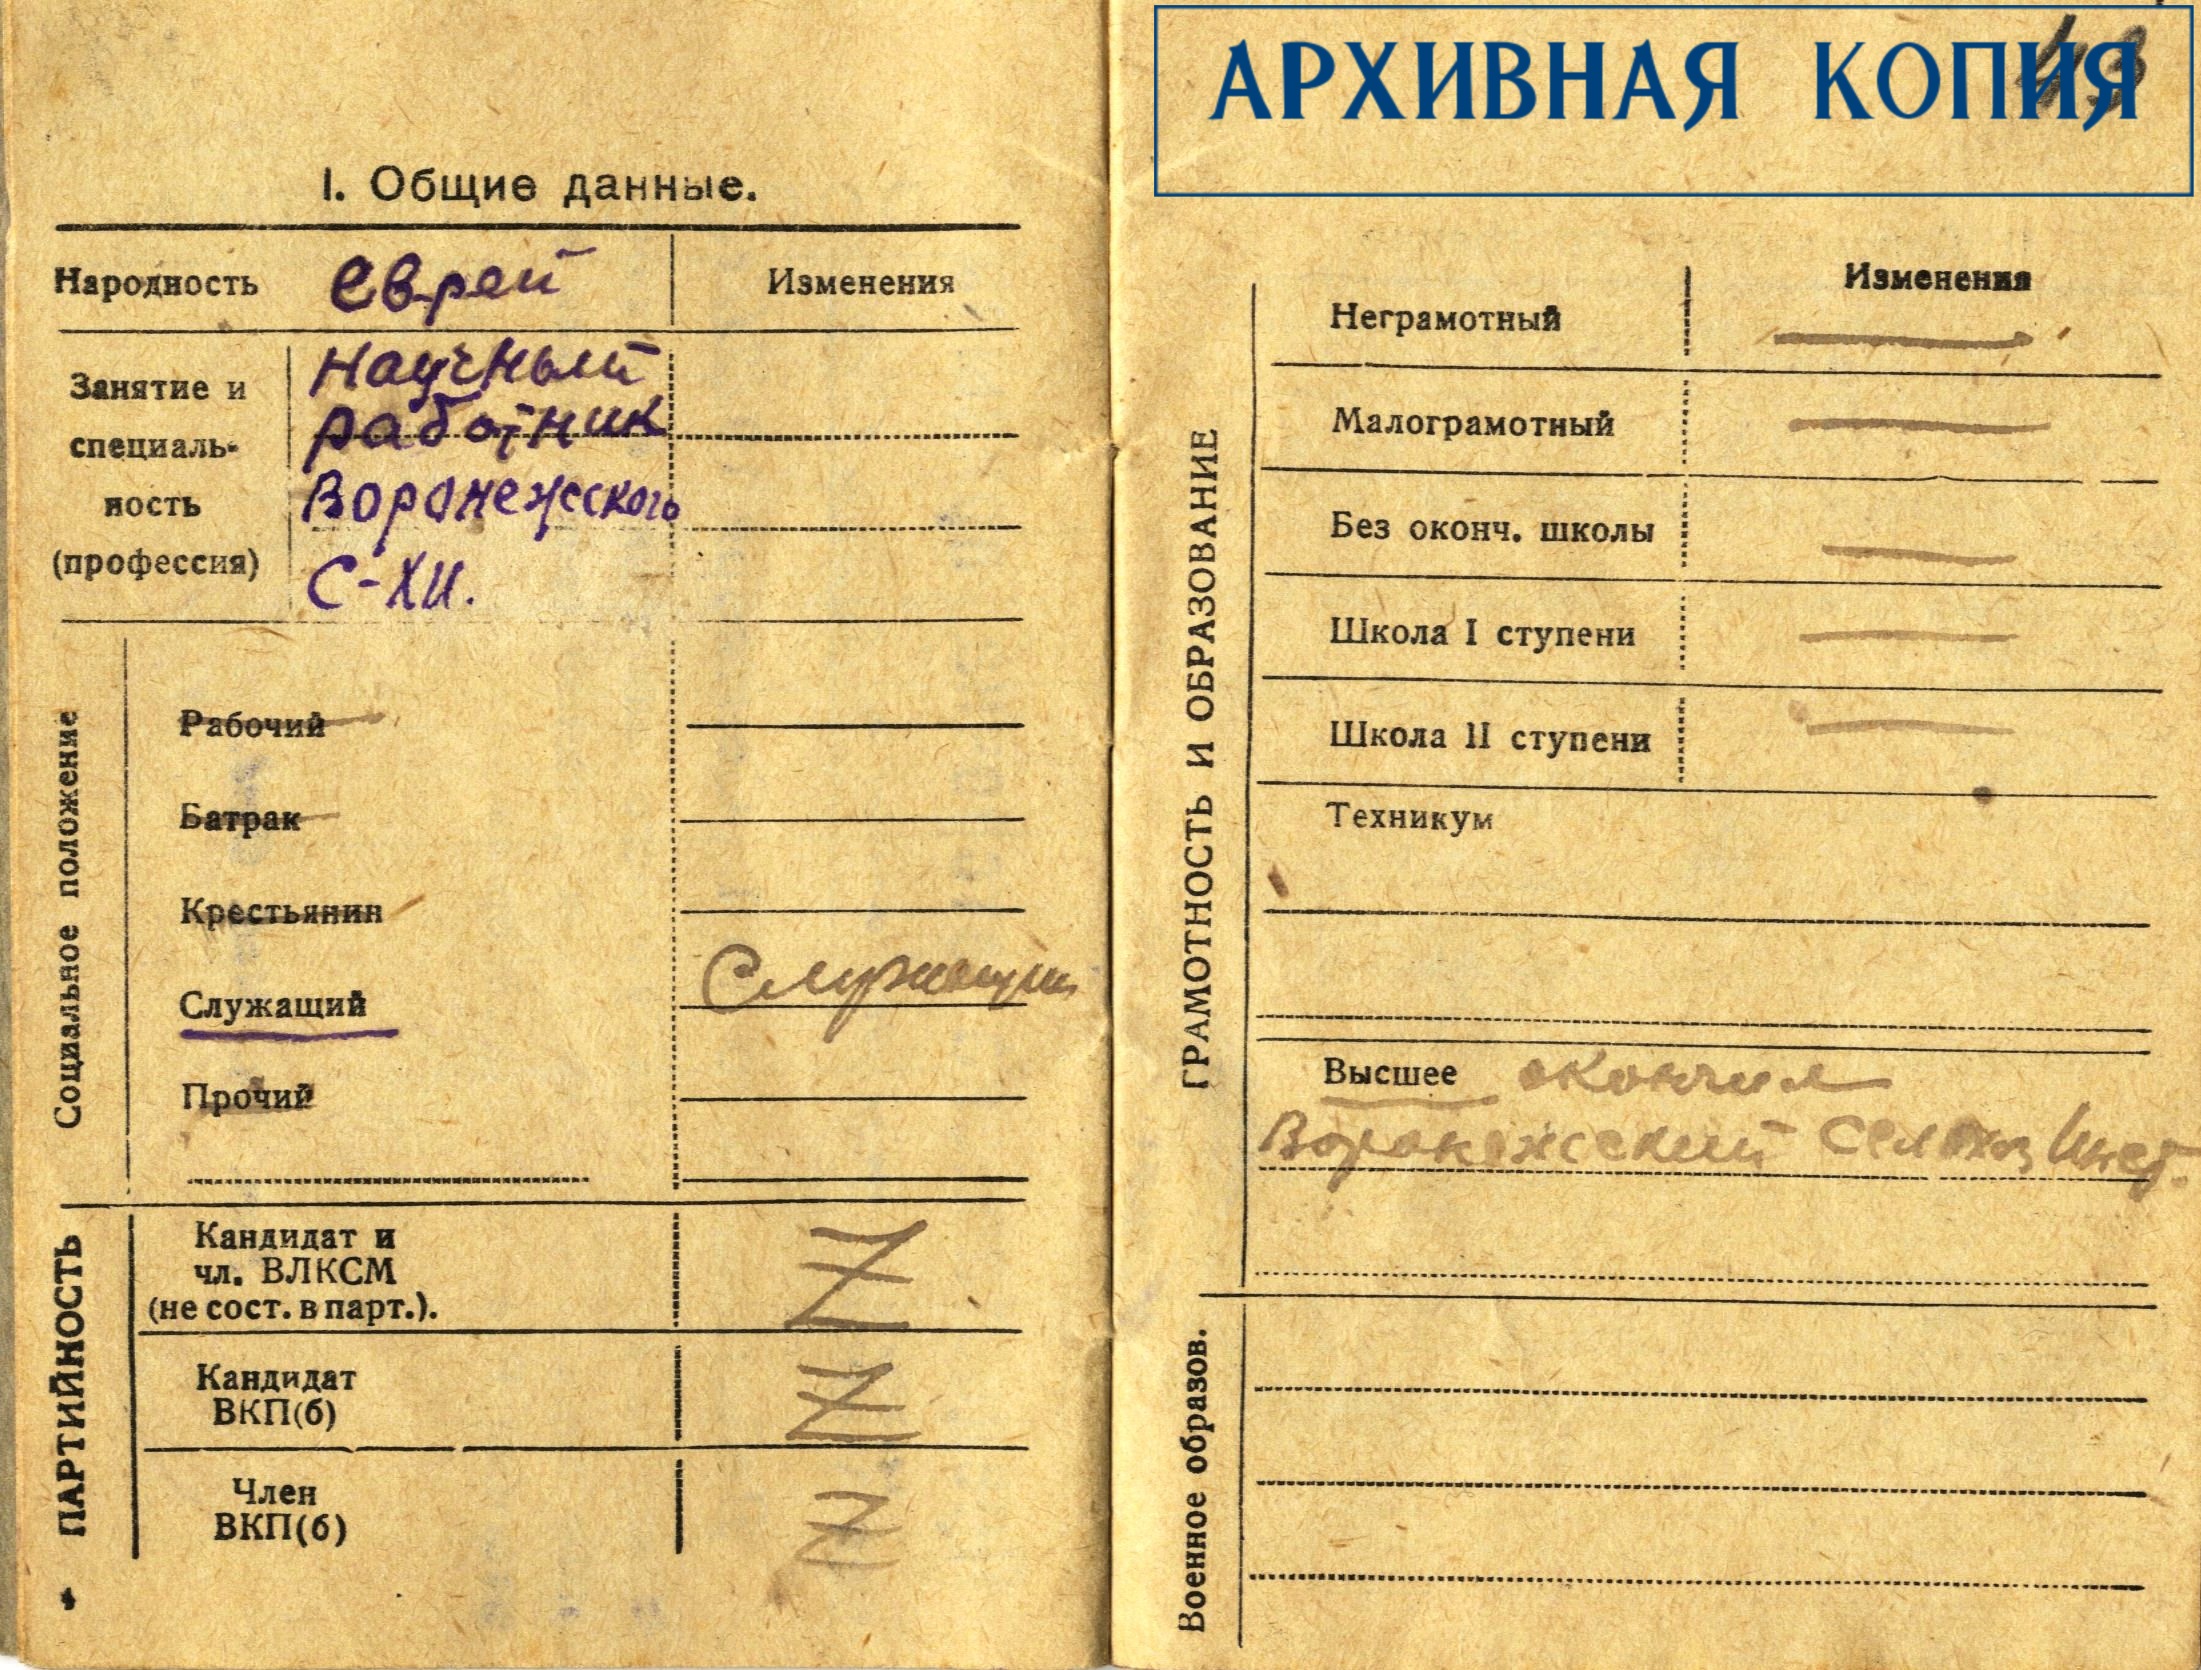 АРХИВНАЯ КОПИЯ
43
I. Общие данные.
Народность еврей Изменения
Занятие и специаль-
ность
(профессия)
научный
работник
Воронежского
С-ХИ.
Социальное положение
Рабочий
Батрак
Крестьянин
Служащий Служащий
Прочий
ПАРТИЙНОСТЬ
Кандидат и
чл. ВЛКСМ
(не сост. в парт.).
Кандидат
ВКП(б)
Член
ВКП(б)
ГРАМОТНОСТЬ И ОБРАЗОВАНИЕ
Изменения
Неграмотный
Малограмотный
Без оконч. школы
Школа I ступени
Школа II ступени
Техникум
Высшее окончил
Воронежский Сельхоз Инст.
Военное образов.